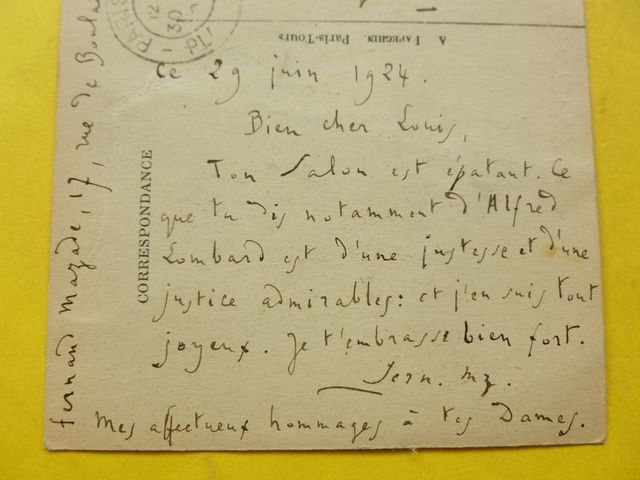 PARIS
PL.
12
30
A. PAPEGHIN. Paris-Tours
CORRESPONDANCE
Fernand Mazade, 17, rue de Boula
Ce 29 juin 1924.
Bien cher Louis,
Ton Salon est épatant. Ce
que tu dis notamment d'Alfred
Lombard est d'une justesse et d'une
justice admirables: et j'en suis tout
joyeux. Je t'embrasse bien fort.
Fern. Mz.
Mes affectueux hommages à tes Dames.